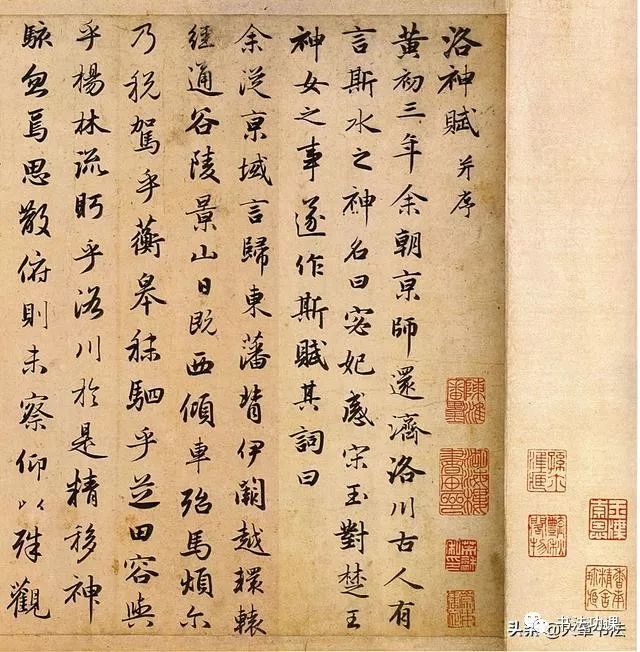 洛神賦 并序
黄初三年余朝京師還濟洛川古人有
言斯水之神名曰宓妃感宋玉對楚王
神女之事遂作斯賦其詞曰
余從京域言歸東藩背伊闕越轘轅
經通谷陵景山日既西傾車殆馬煩尔
乃稅駕乎蘅皋秣駟乎芝田容與
乎楊林流眄乎洛川於是精移神
駭忽焉思散俯則未察仰以殊觀
书法功课
头条